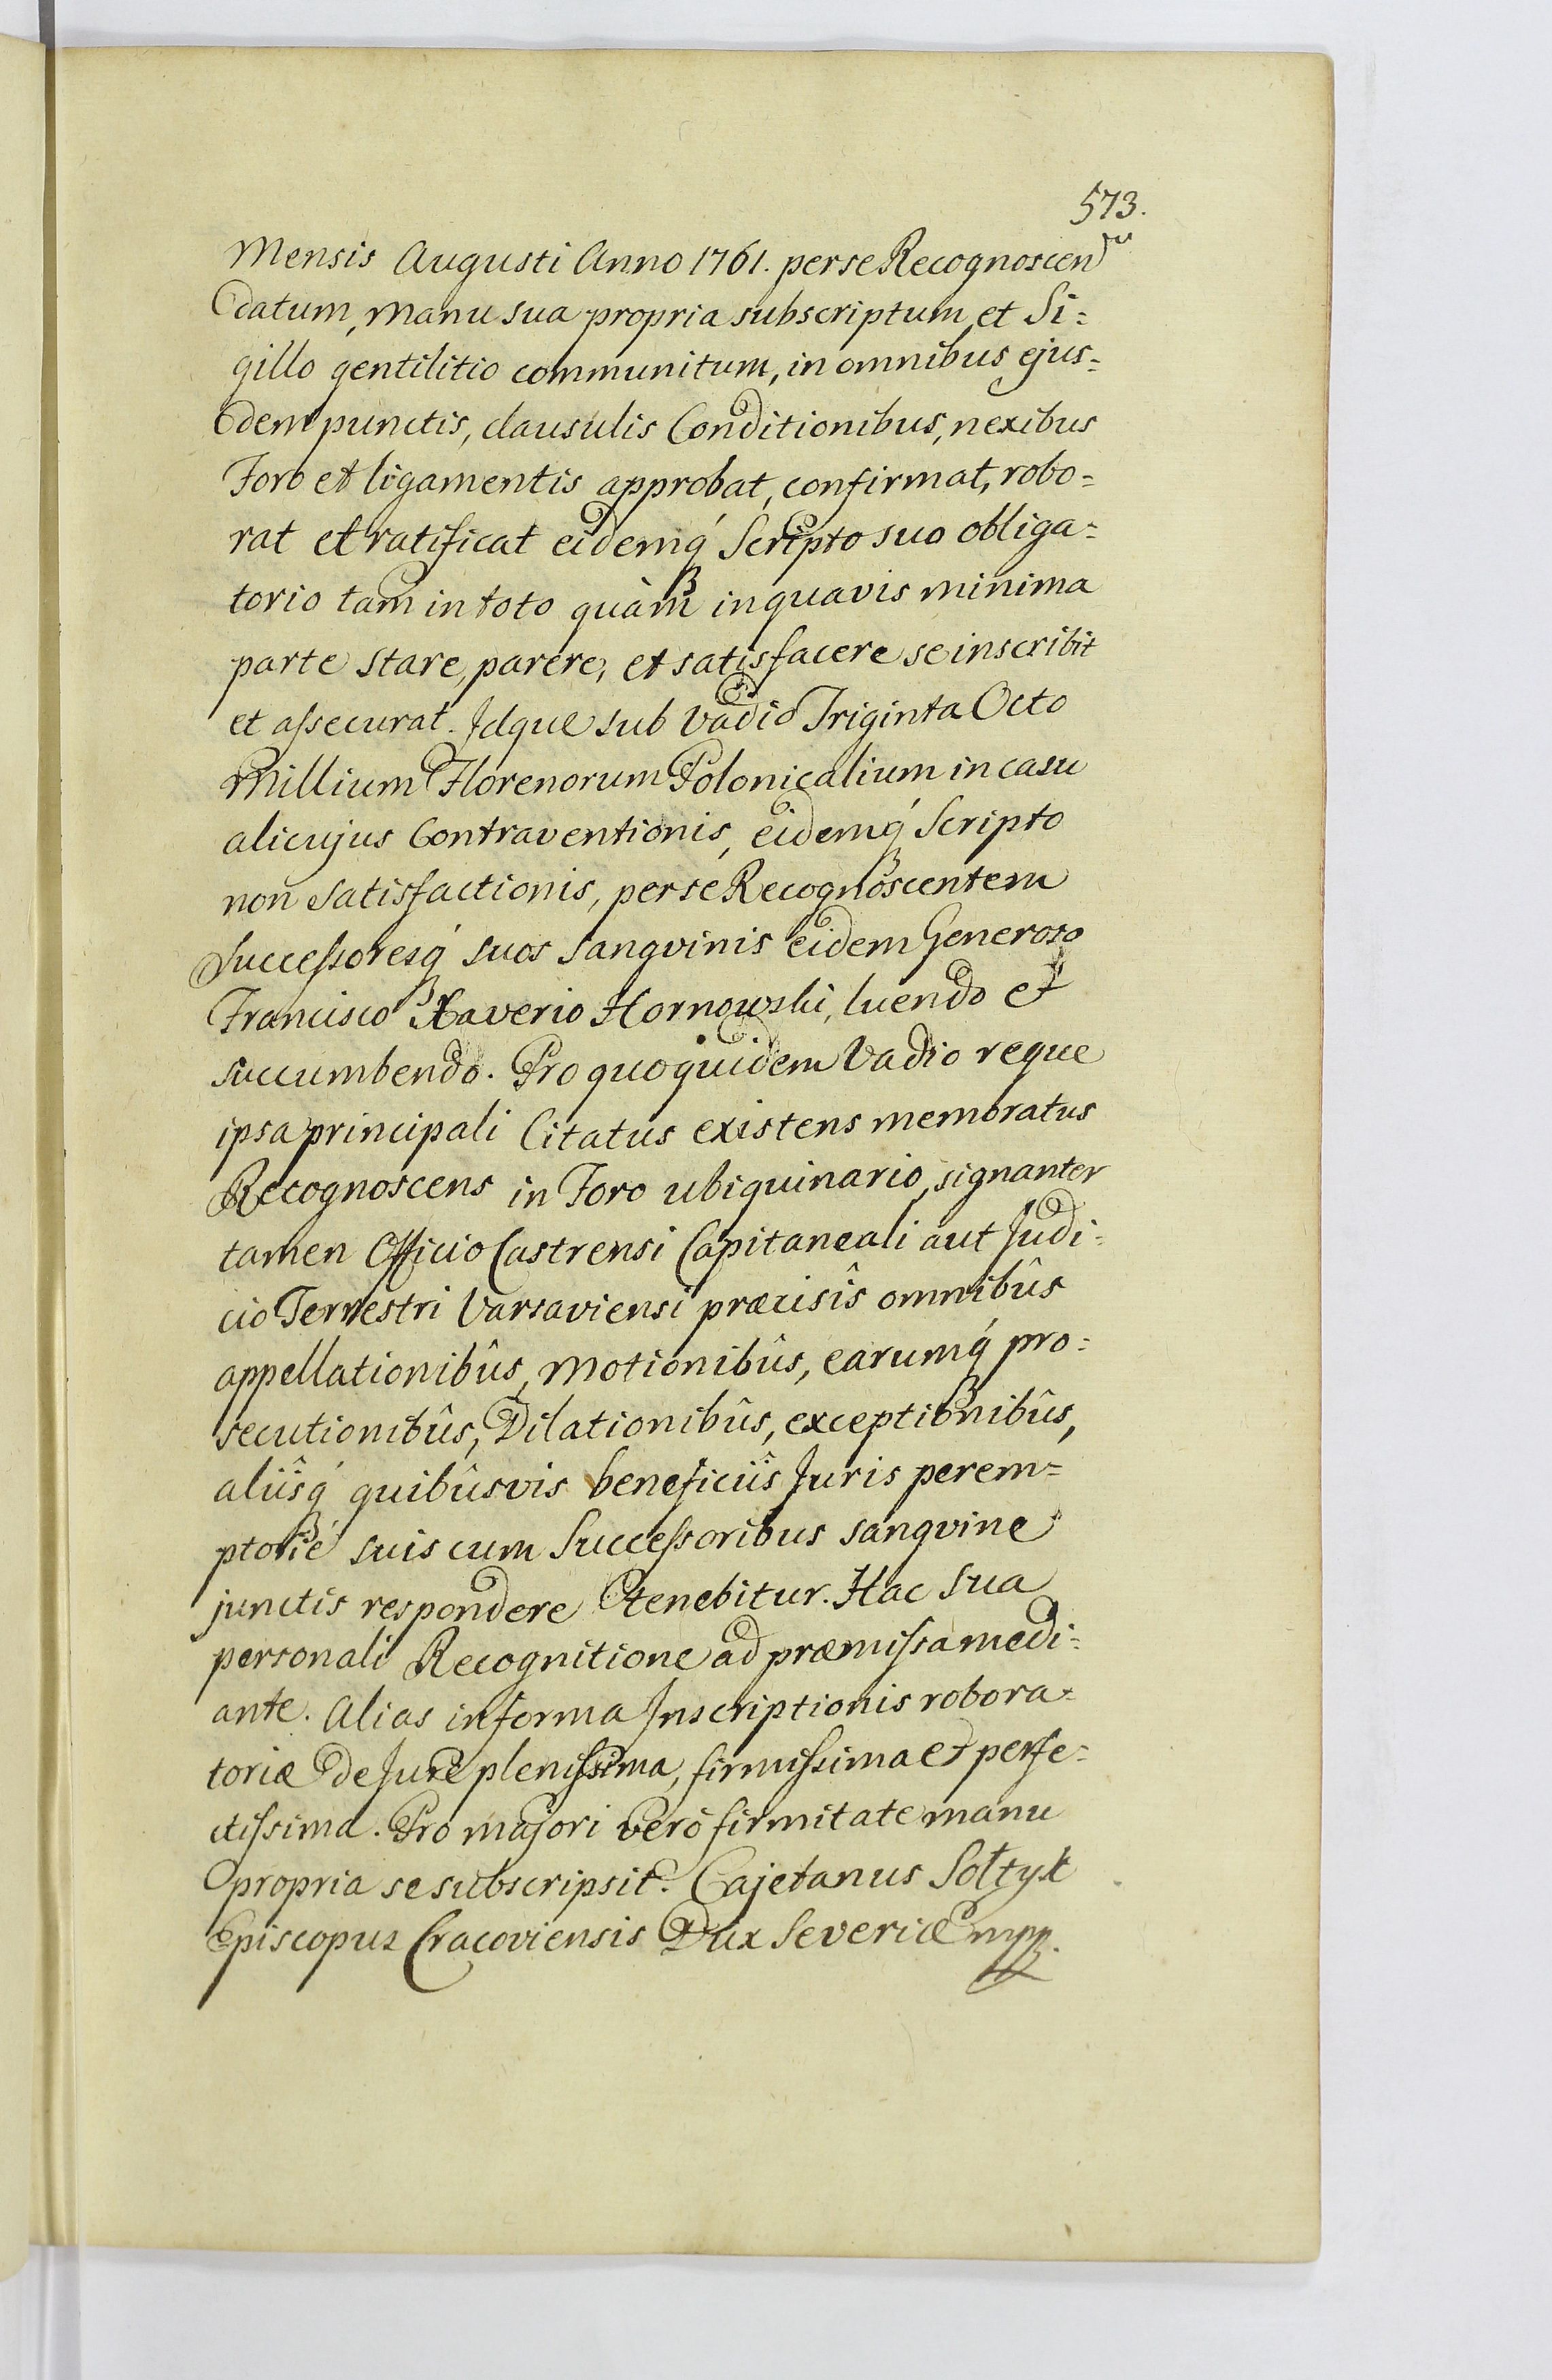 573.
Mensis Augusti Anno 1761. per se Recognoscen
datum, manu sua propria subscriptum et Si=
gillo gentilitio communitum, in omnibus ejus=
dem punctis, clausulis Conditionibus, nexibus
Foro et ligamentis approbat, confirmat, robo=
rat et ratificat eidemq́ Scripto suo obliga=
torio tam in toto quàm in quavis minima
parte stare, parere, et satisfacere se inscribit
et assecurat. Idque sub Vadio Triginta Octo
Millium Florenorum Polonicalium in casu
alicujus Contraventionis, eidemq́ Scripto
non satisfactionis, per se Recognoscentem
Successoresq́ suos sangvinis eidem Generoso
Francisco Xaverio Hornowski, luendo et
succumbendo. Pro quo quidem Vadio reque
ipsa principali Citatus existens memoratus
Recognoscens in Foro ubiquinario, signanter
tamen Officio Castrensi Capitaneali aut Judi=
cio Terrestri Varsaviensi præcisîs omnibûs
appellationibûs, motionibûs, earumq́ pro=
secutionibûs, Dilationibûs, exceptionibûs,
aliîsq́ quibûsvis beneficiîs Juris perem=
ptorié suis cum Successoribus sangvine
junctis respondere tenebitur. Hac sua
personali Recognitione ad præmissa medi=
ante. Alias in forma Inscriptionis robora=
toriæ de Jure plenissima, firmissima et perfe=
ctissima. Pro majori verò firmitate manu
propria se subscripsit. Cajetanus Sołtyk
Episcopus Cracoviensis Dux Severiæ mpp.